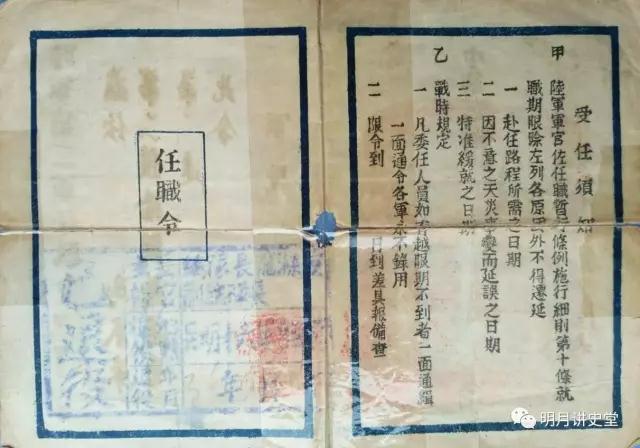 受任須知
甲 陸軍軍官佐任職暫行條例施行細則第十條就
職期限除左列各原因外不得遷延
一 赴任路程所需之日期
二 因不意之天災事變而延誤之日期
三 特准緩就之日期
乙 戰時規定
一 凡委任人員如有越限期不到者一面通緝
一面通令各軍永不錄用
二 限令到 日到差具報備查
任職令
明月讲史堂